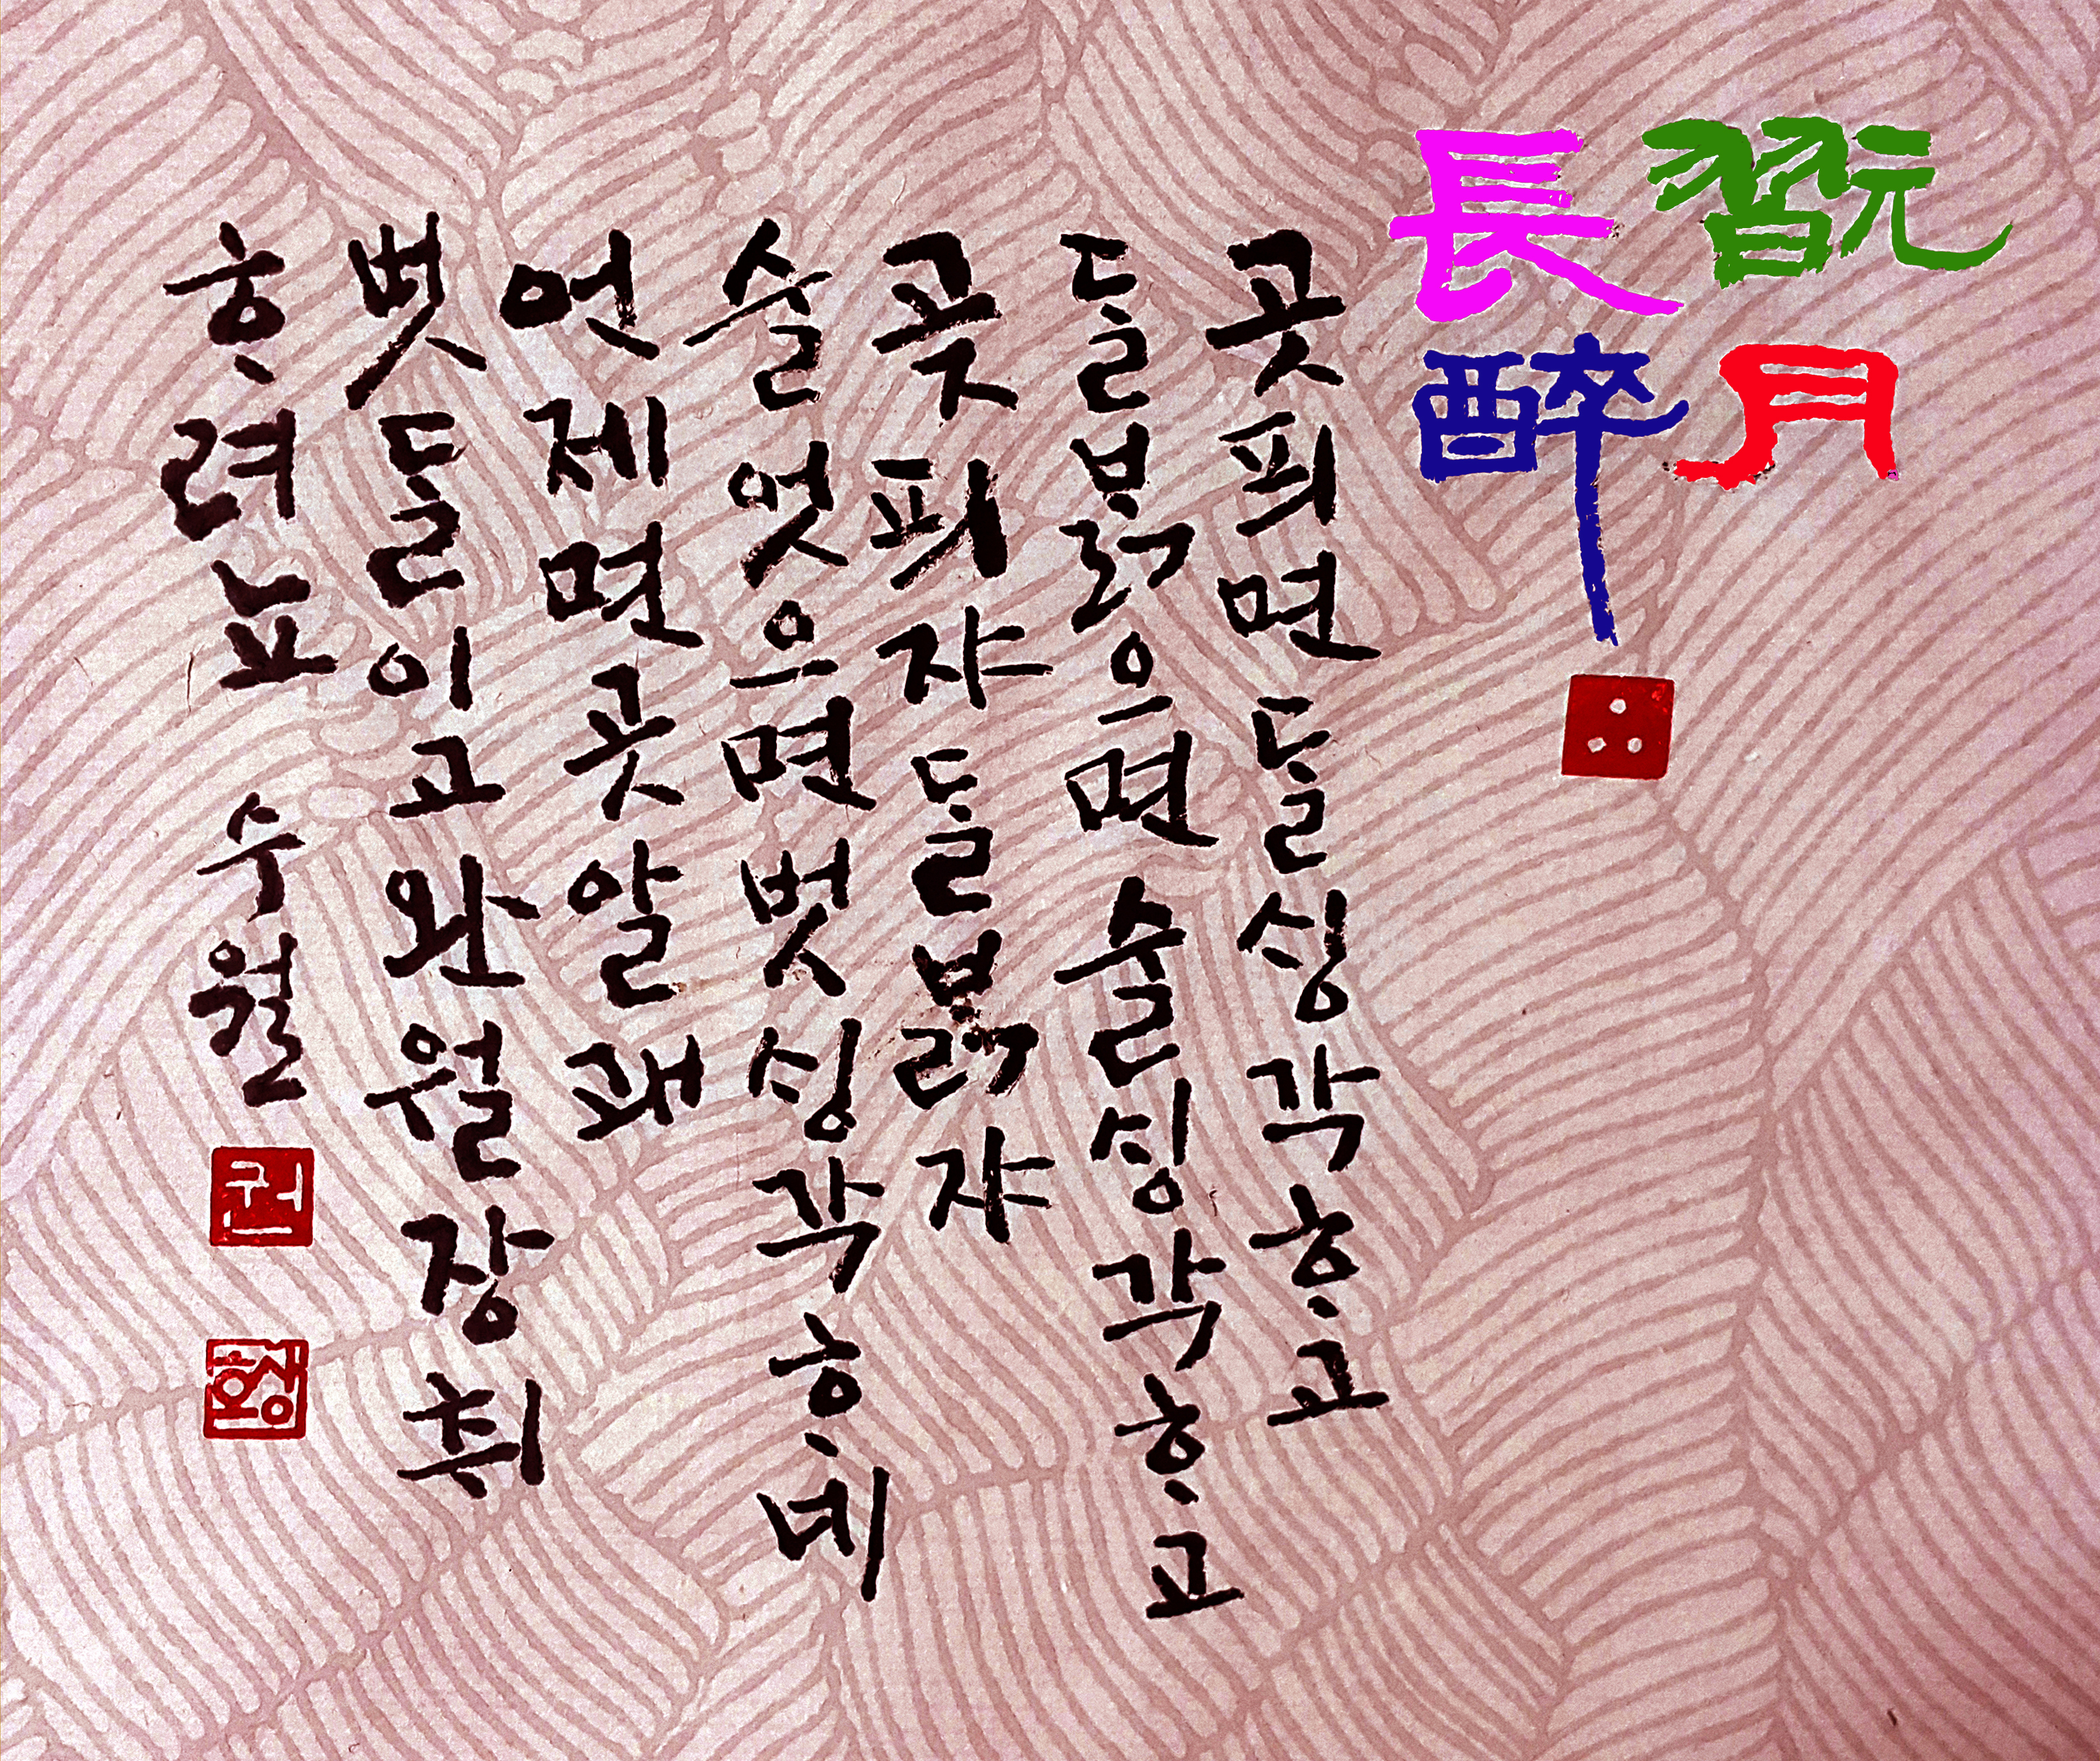 翫月
長醉
곳픠면ᄃᆞᆯ싱각ᄒᆞ고
ᄃᆞᆯ붉으면술싱각ᄒᆞ고
곳픠쟈ᄃᆞᆯ붉쟈
술엇으면벗싱각ᄒᆞ네
언제면곳알래
벗ᄃᆞᆯ이고완월장취
ᄒᆞ려뇨 수월
권